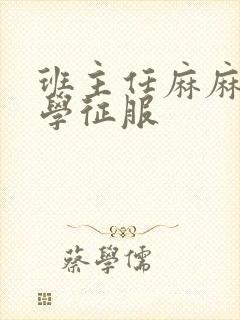 班主任麻麻
學征服
蔡學儒